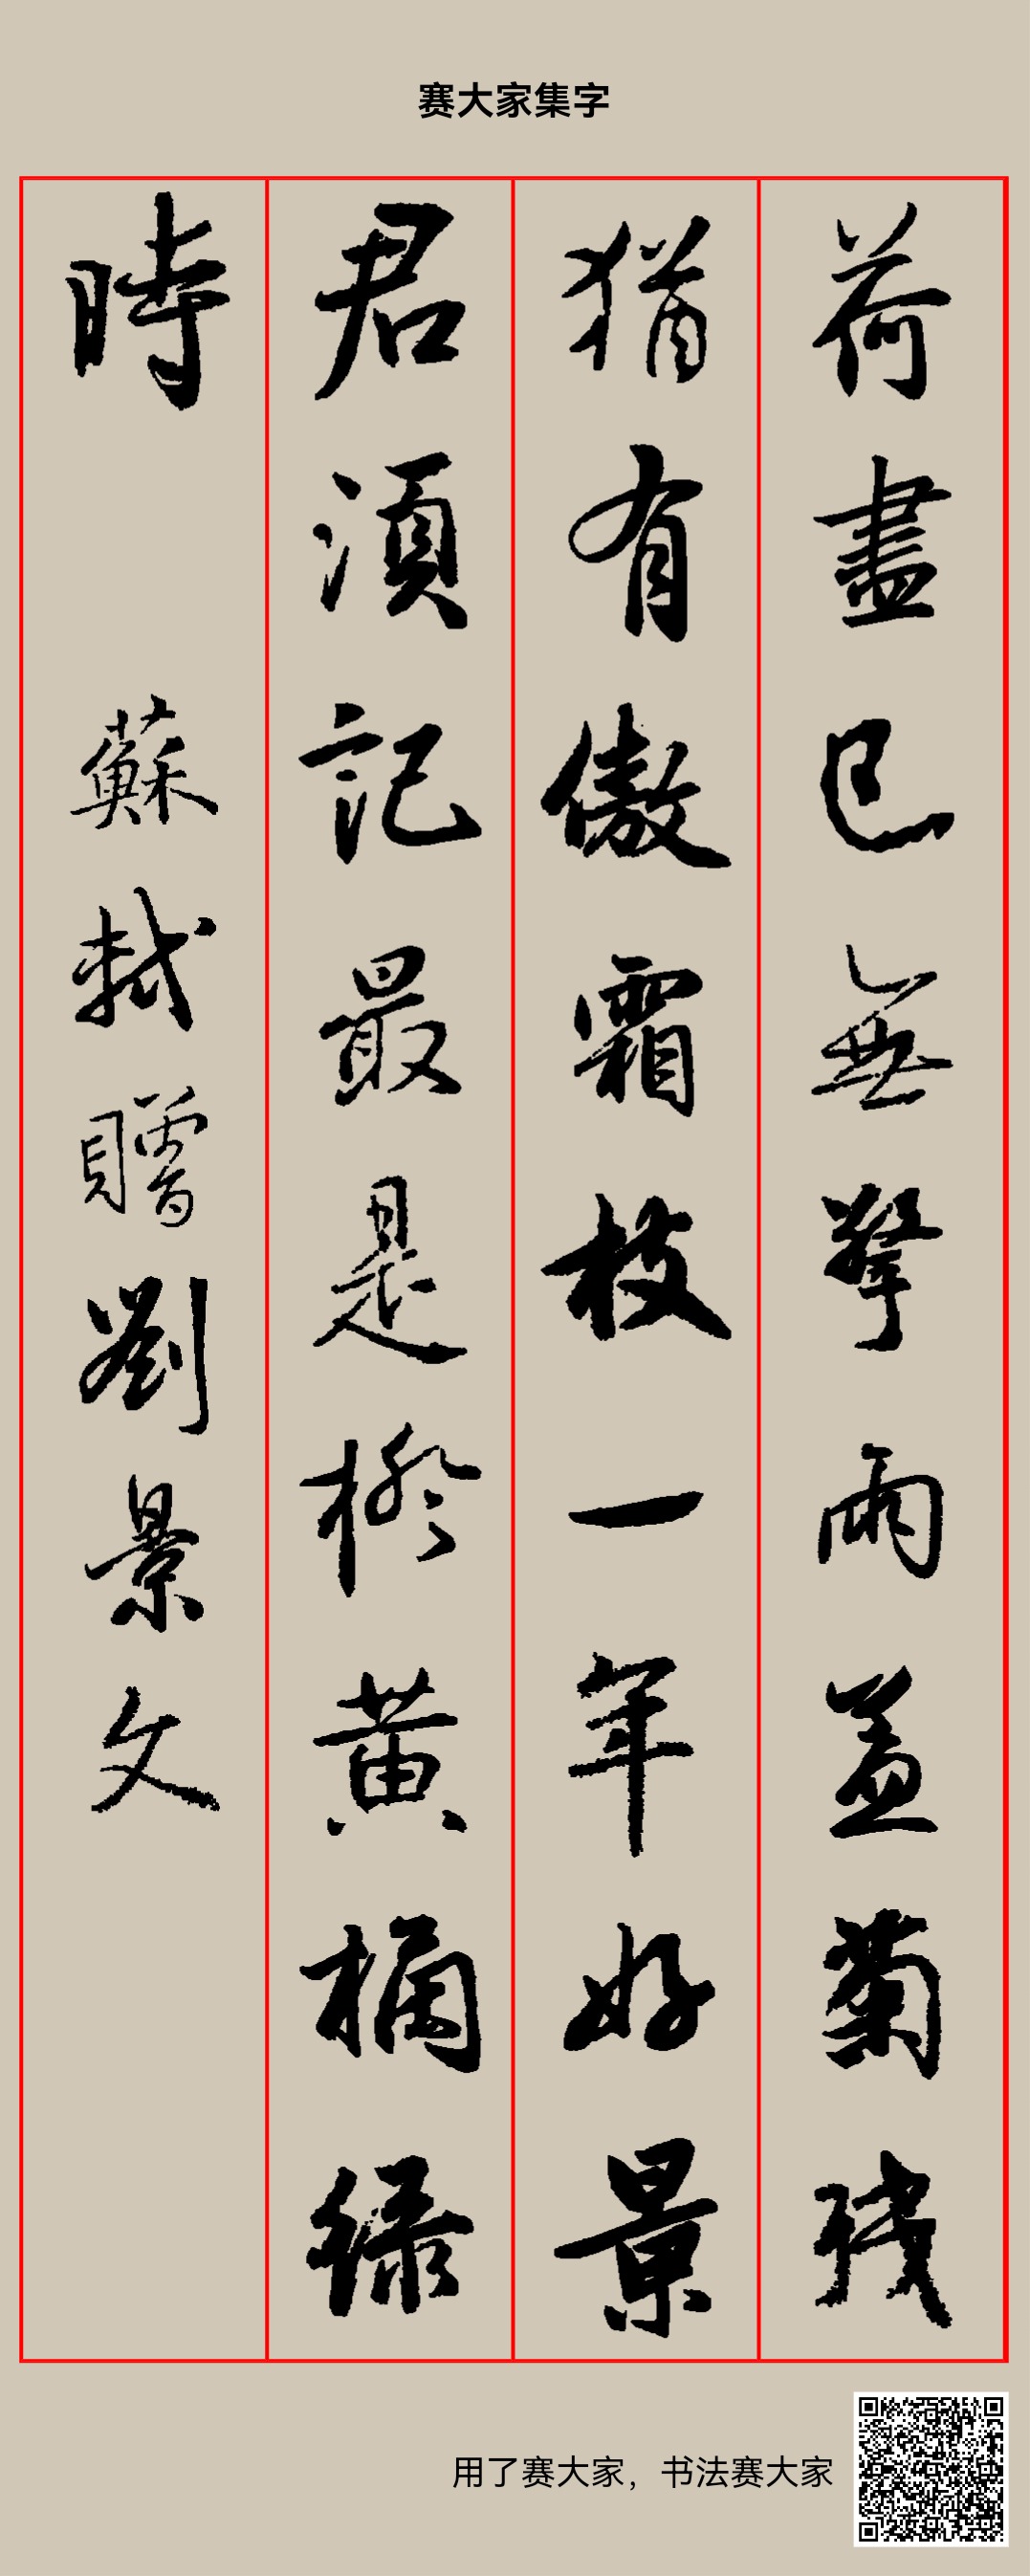 赛大家集字
荷盡已無擎雨盖菊殘
猶有傲霜枝一年好景
君須記最是橙黄橘緑
時
蘇軾贈劉景文
用了赛大家，书法赛大家